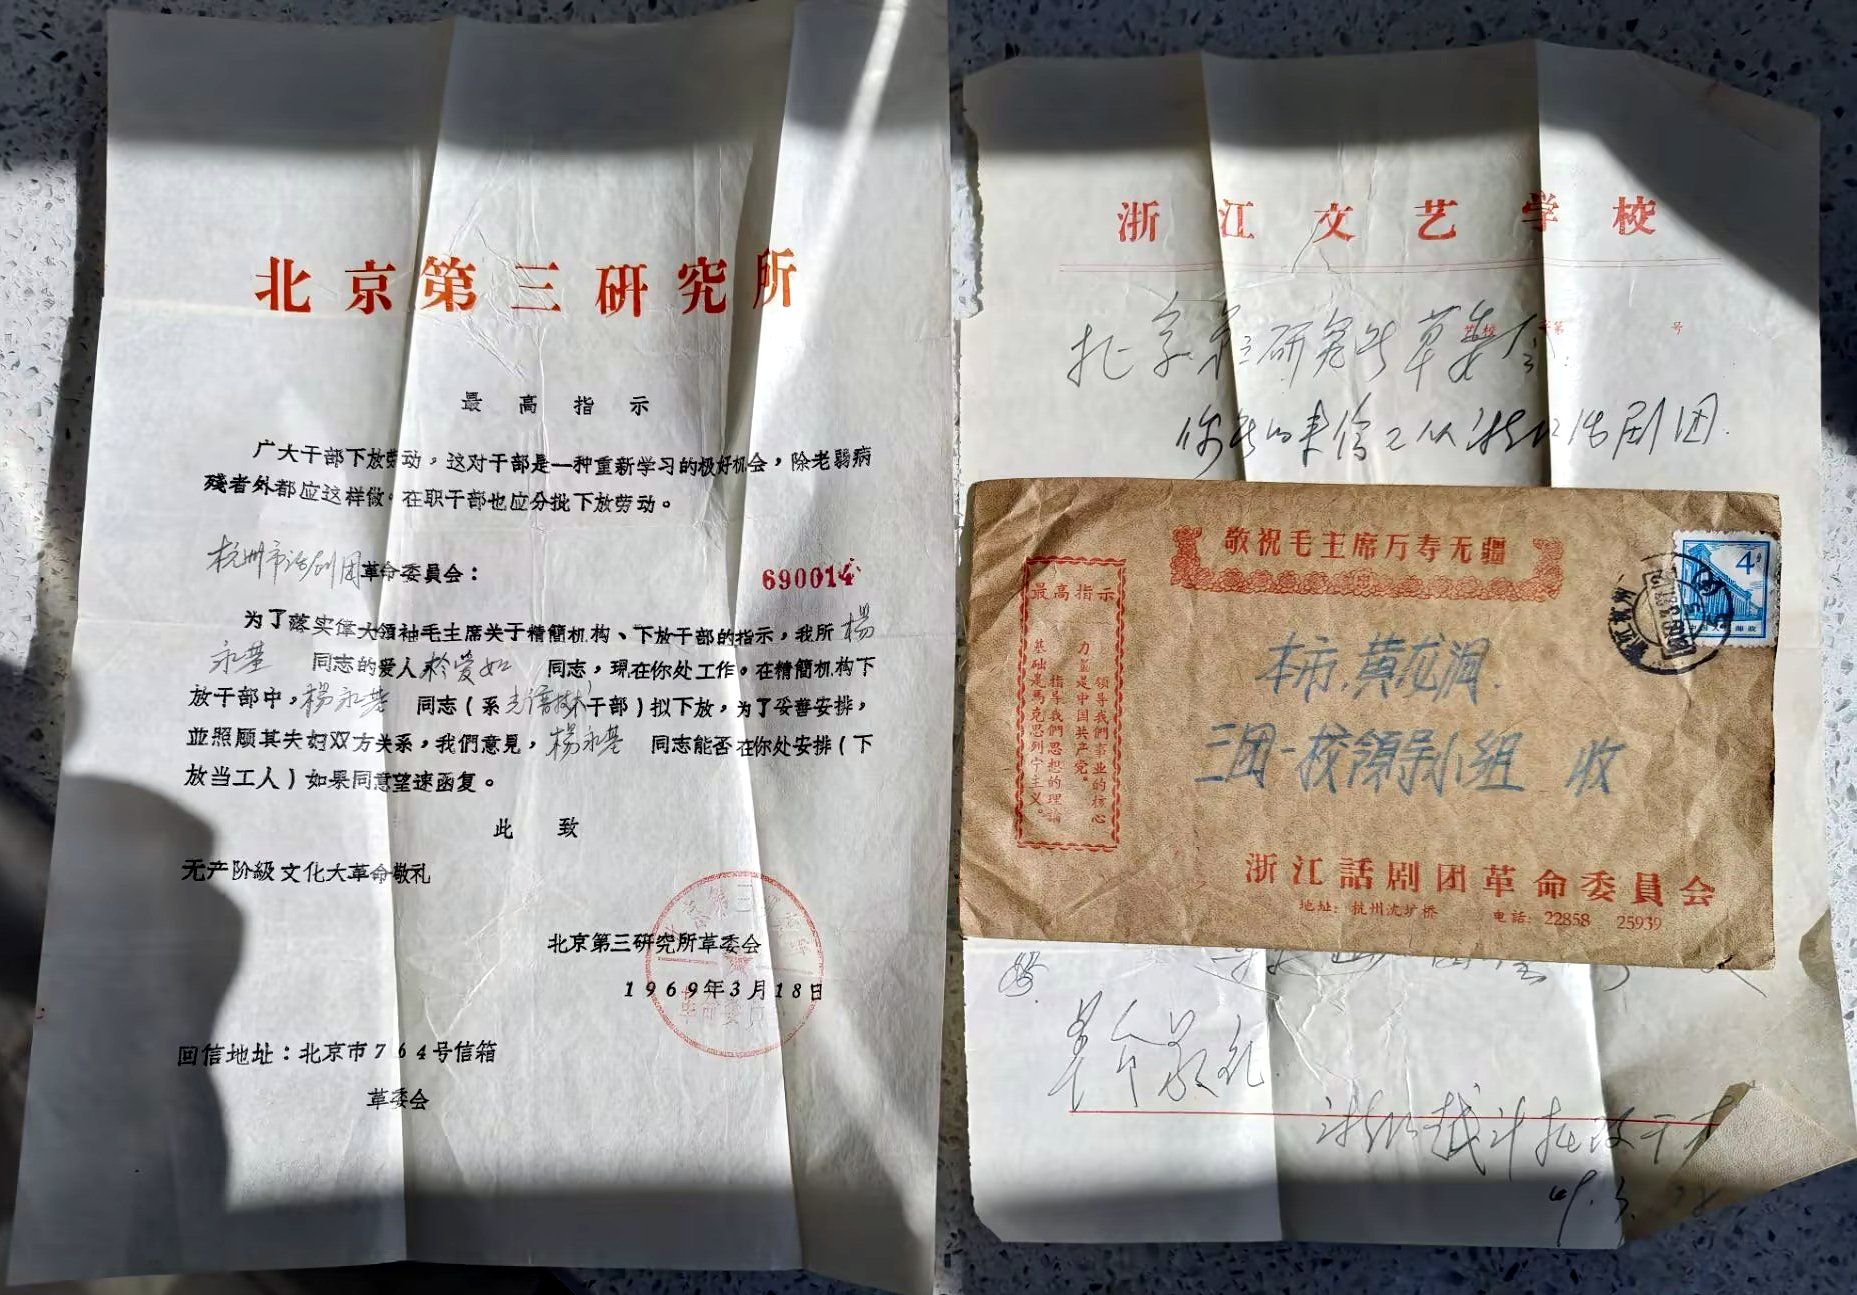 北京第三研究所
最高指示
广大干部下放劳动，这对干部是一种重新学习的极好机会，除老弱病
残者外都应这样做。在职干部也应分批下放劳动。
杭州市话剧团革命委員会：
690014
为了落实偉大領袖毛主席关于精簡机构、下放干部的指示，我所楊
永基 同志的爱人 爱如 同志，現在你处工作。在精簡机构下
放干部中，楊永基 同志（系 干部）拟下放，为了妥善安排，
並照顾其夫妇双方关系，我們意見，楊永基 同志能否在你处安排（下
放当工人）如果同意望速函复。
此 致
无产阶級文化大革命敬礼
北京第三研究所革委会
1969年3月18日
回信地址：北京市764号信箱
革委会
浙江文艺学校
号
北京第三研究所革委会：
你所的来信已从浙江话剧团
敬祝毛主席万寿无疆
最高指示
領导我們事业的核心
力量是中国共产党。
指导我們思想的理論
基础是馬克思列宁主义。
4
本市.黄龙洞.
三团一校領导小組 收
浙江話剧团革命委員会
地址：杭州沈圹桥 电話：22858 25939
革命敬礼